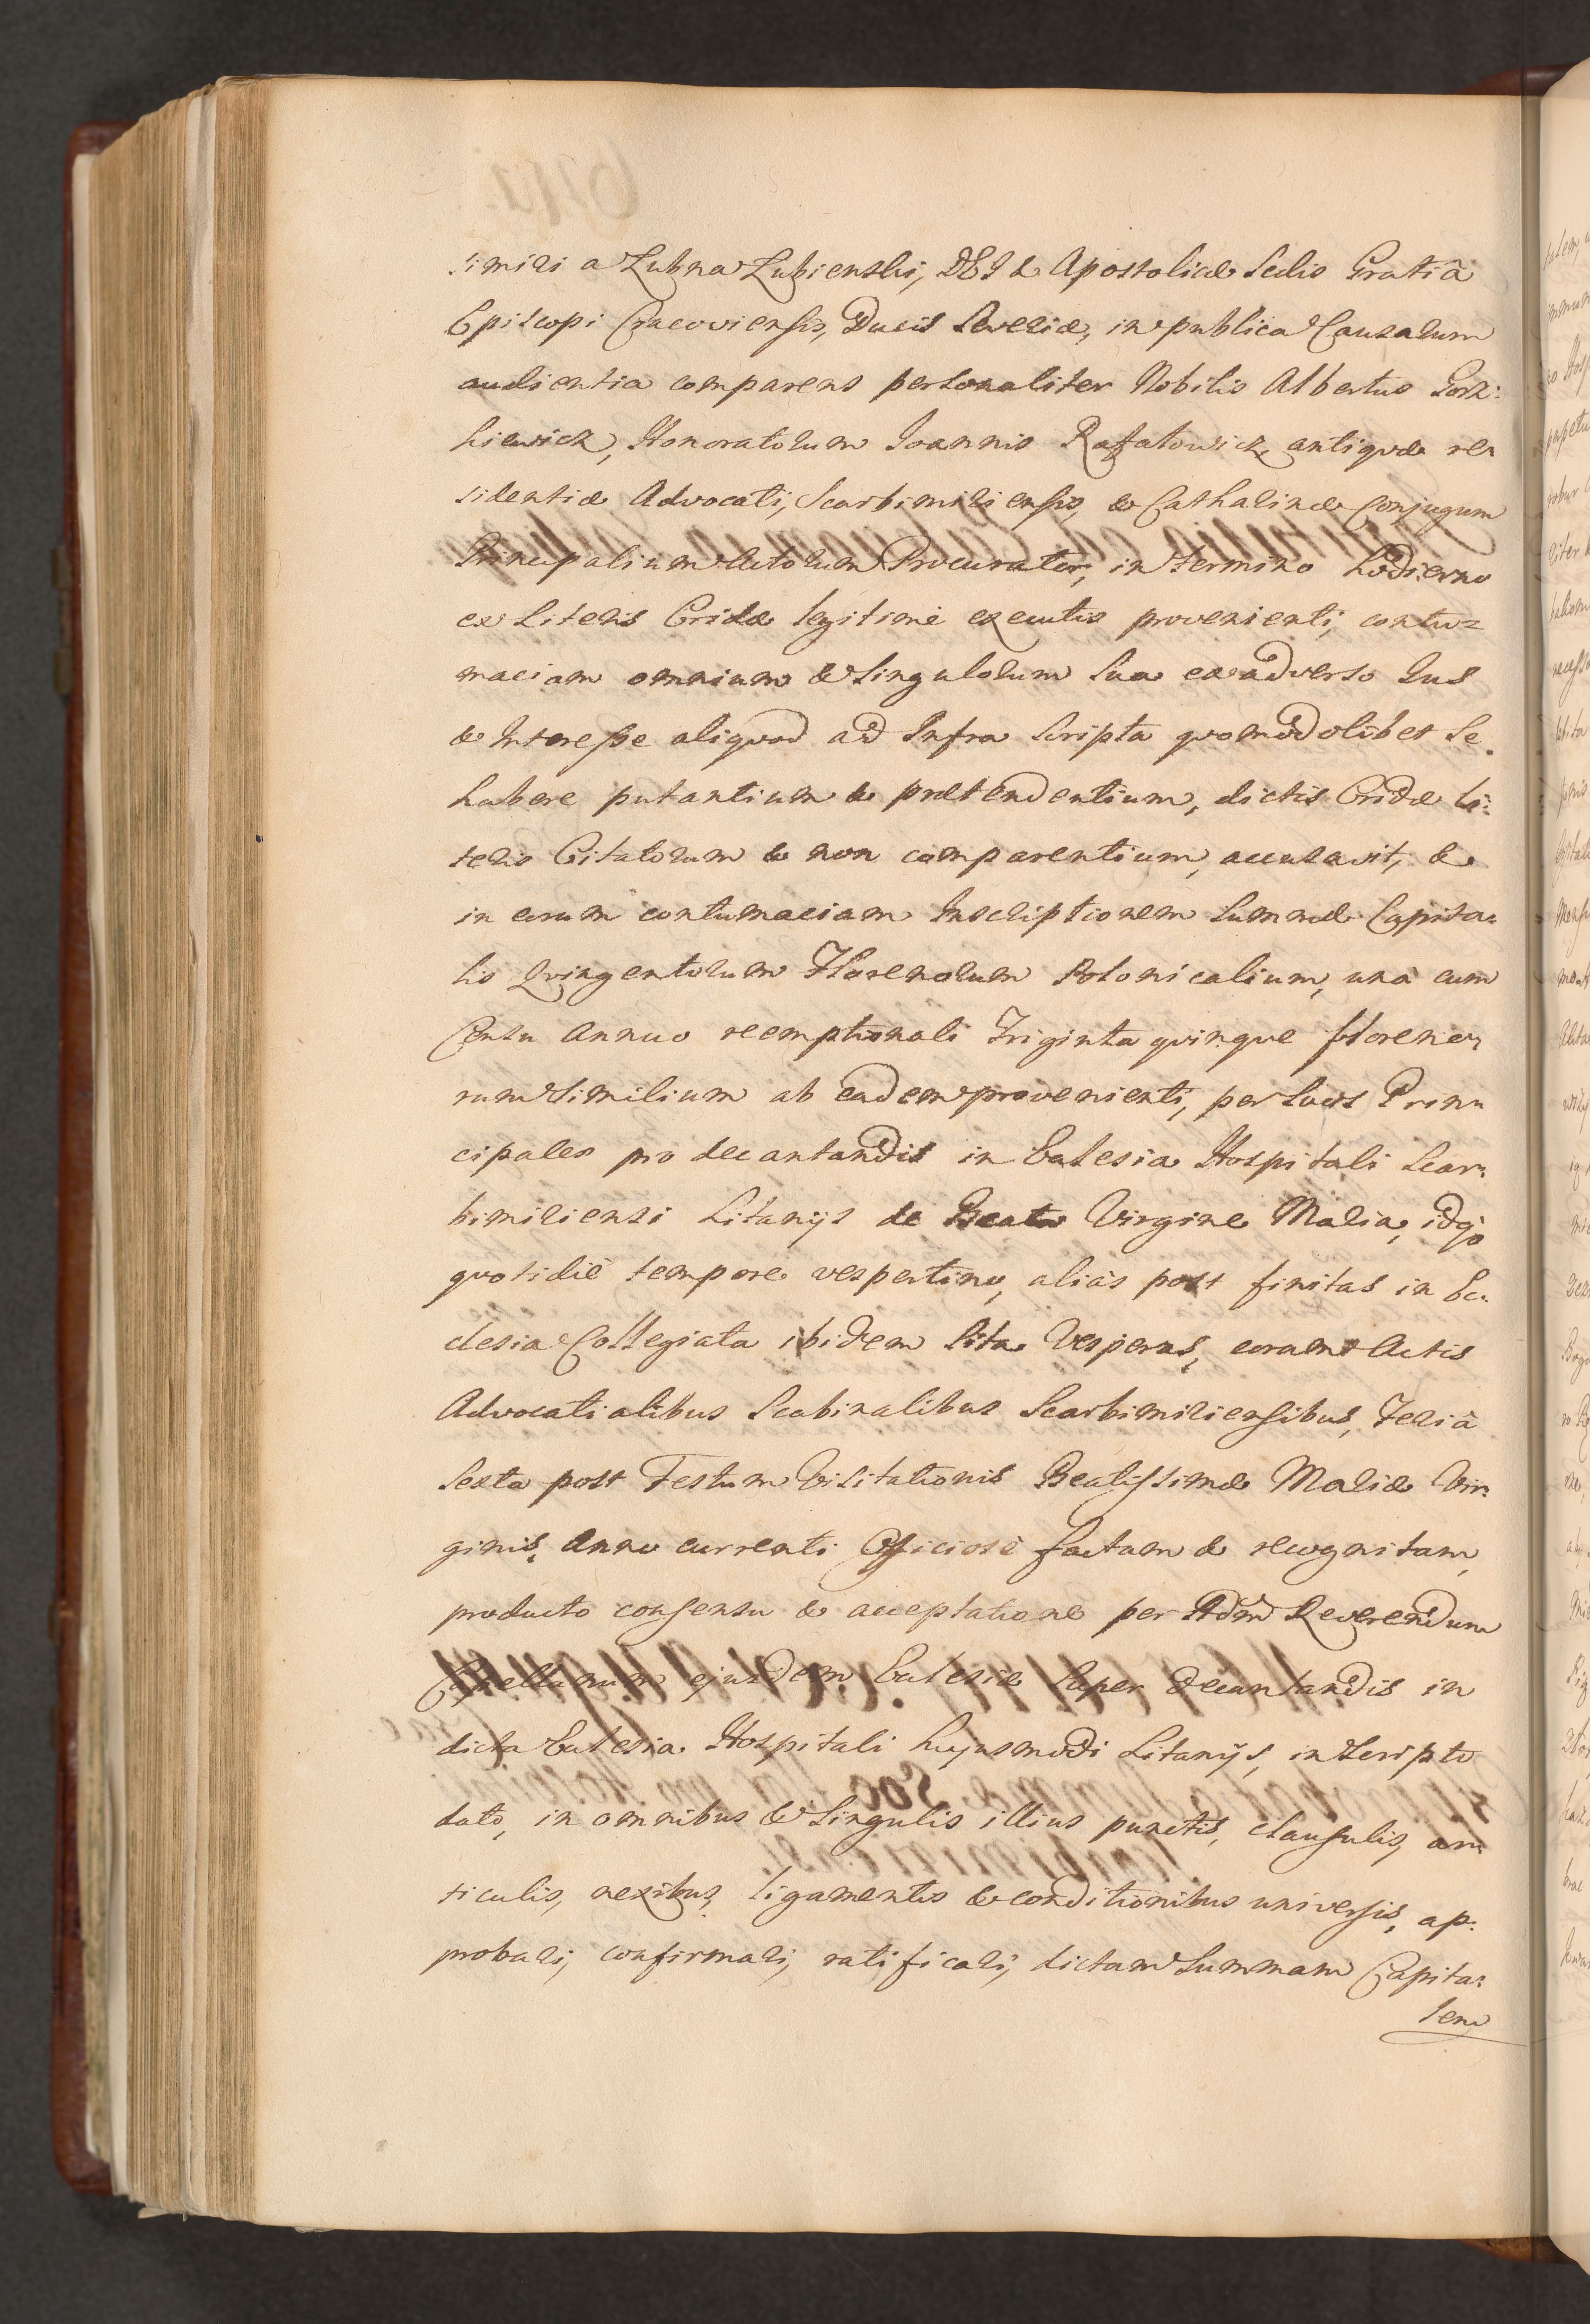 simiri a Lubna Lubienski, DEI & Apostolicæ Sedis Gratiâ
Episcopi Cracoviensis, Ducis Severiæ, in publica Causarum
audientia comparens personaliter Nobilis Albertus Gorz:
kiewicz, Honoratorum Joannis Rafatowicz, antiquæ re=
sidentiæ Advocati, Scarbimiriensis, & Catharinæ Conjugum
Principalium Actorum Procurator, in termino hodierno
ex Literis Cridæ legitimè executis provenienti, contu=
maciam omnium & Singulorum Sua ex adverso Jus
& Interesse aliquod ad Infra Scripta quomodolibet Se
habere putantium & prætendentium, dictis Cridæ Li:
teris Citatorum & non comparentium, accusavit, &
in eorum contumaciam Inscriptionem Summæ Capita=
lis Quingentorum Florenorum Polonicalium, unà cum
Censu Annuo reemptionali Triginta quinque floreno=
rum Similium ab eadem provenienti, per Suos Prin=
cipales pro decantandis in Ecclesia Hospitali Scar=
bimiriensi Litanijs de Beata Virgine Maria, idq3
quotidiè tempore vespertino, aliàs post finitas in Ec=
clesia Collegiata ibidem Sita Vesperas, coram Actis
Advocatialibus Scabinalibus Scarbimiriensibus, Feriâ
Sexta post Festum Visitationis Beatissimæ Mariæ Vir=
ginis, Anno currenti Officiosè factam & recognitam,
producto consensu & acceptatione per Adm Reverendum
Capellanum ejusdem Ecclesiæ Super decantandis in
dicta Ecclesia Hospitali hujusmodi Litanijs, in Scripto
dato, in omnibus & Singulis illius punctis, clausulis, ar=
ticulis, nexibus, ligamentis & conditionibus universis, ap:
probari, confirmari, ratificari, dictam Summam Capita=
lem